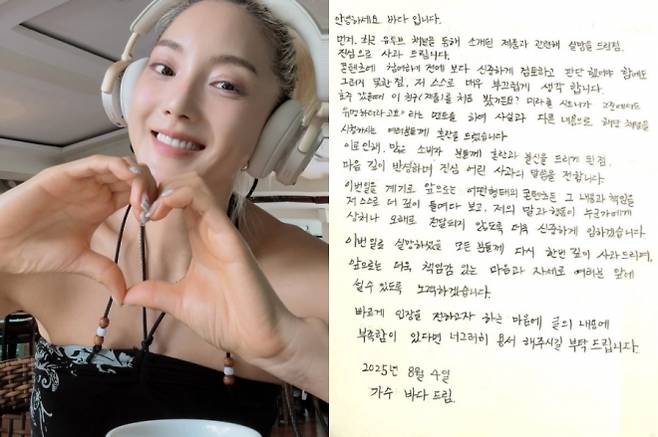 안녕하세요 바다 입니다.
먼저, 최근 유튜브 채널을 통해 소개된 제품과 관련해 실망을 드린점,
진심으로 사과 드립니다.
콘텐츠에 참여하기 전에 보다 신중하게 검토하고 판단 했어야 함에도
그러지 못한점, 저 스스로 매우 부끄럽게 생각 합니다.
호주 갔을때 이 친구(제품)를 처음 봤거든요? 미라클 시드니가 2존에서도
유명하더라고요" 라는 멘트를 하여 사실과 다른 내용으로 해당 채널을
시청하시는 여러분들께 혼란을 드렸습니다
이로 인해, 많은 소비자 분들께 혼란과 불신을 드리게 된점,
마음 깊이 반성하며 진심 어린 사과의 말씀을 전합니다
이번일을 계기로 앞으로는 어떤형태의 콘텐츠든 그 내용과 책임을
저 스스로 더 깊이 들여다 보고, 저의 말과 행동이 누군가에게
상처나 오해로 전달되지 않도록 더욱 신중하게 임하겠습니다
이번 일로 실망하셨을 모든 분들께 다시 한번 깊이 사과드리며,
앞으로는 더욱 책임감 있는 마음과 자세로 여러분 앞에
설수 있도록 노력하겠습니다.
빠르게 입장을 전하고자 하는 마음에 글의 내용에
부족함이 있다면 너그러히 용서 해주시길 부탁 드립니다.
2025년 8월 4일
가수 바다 드림